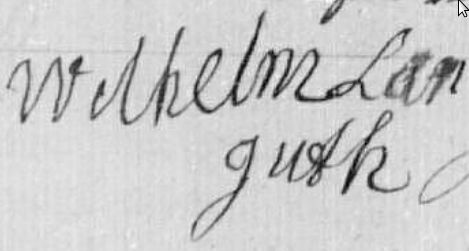 Wilhelm Lan
guth